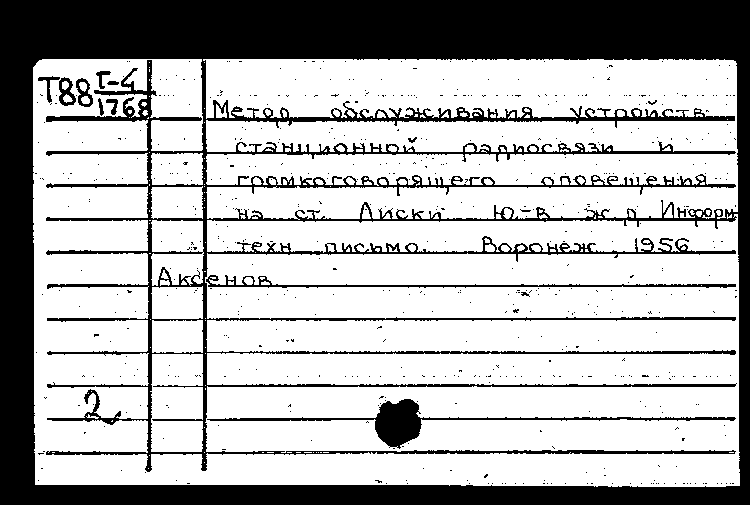 Т88 Г-4
1768
Метод обслуживания устройств
станционной радиосвязи и
громкоговорящего оповещения
на ст. Лиски Ю-В ж.д. Информ
техн письмо. Воронеж, 1956
Аксенов
2